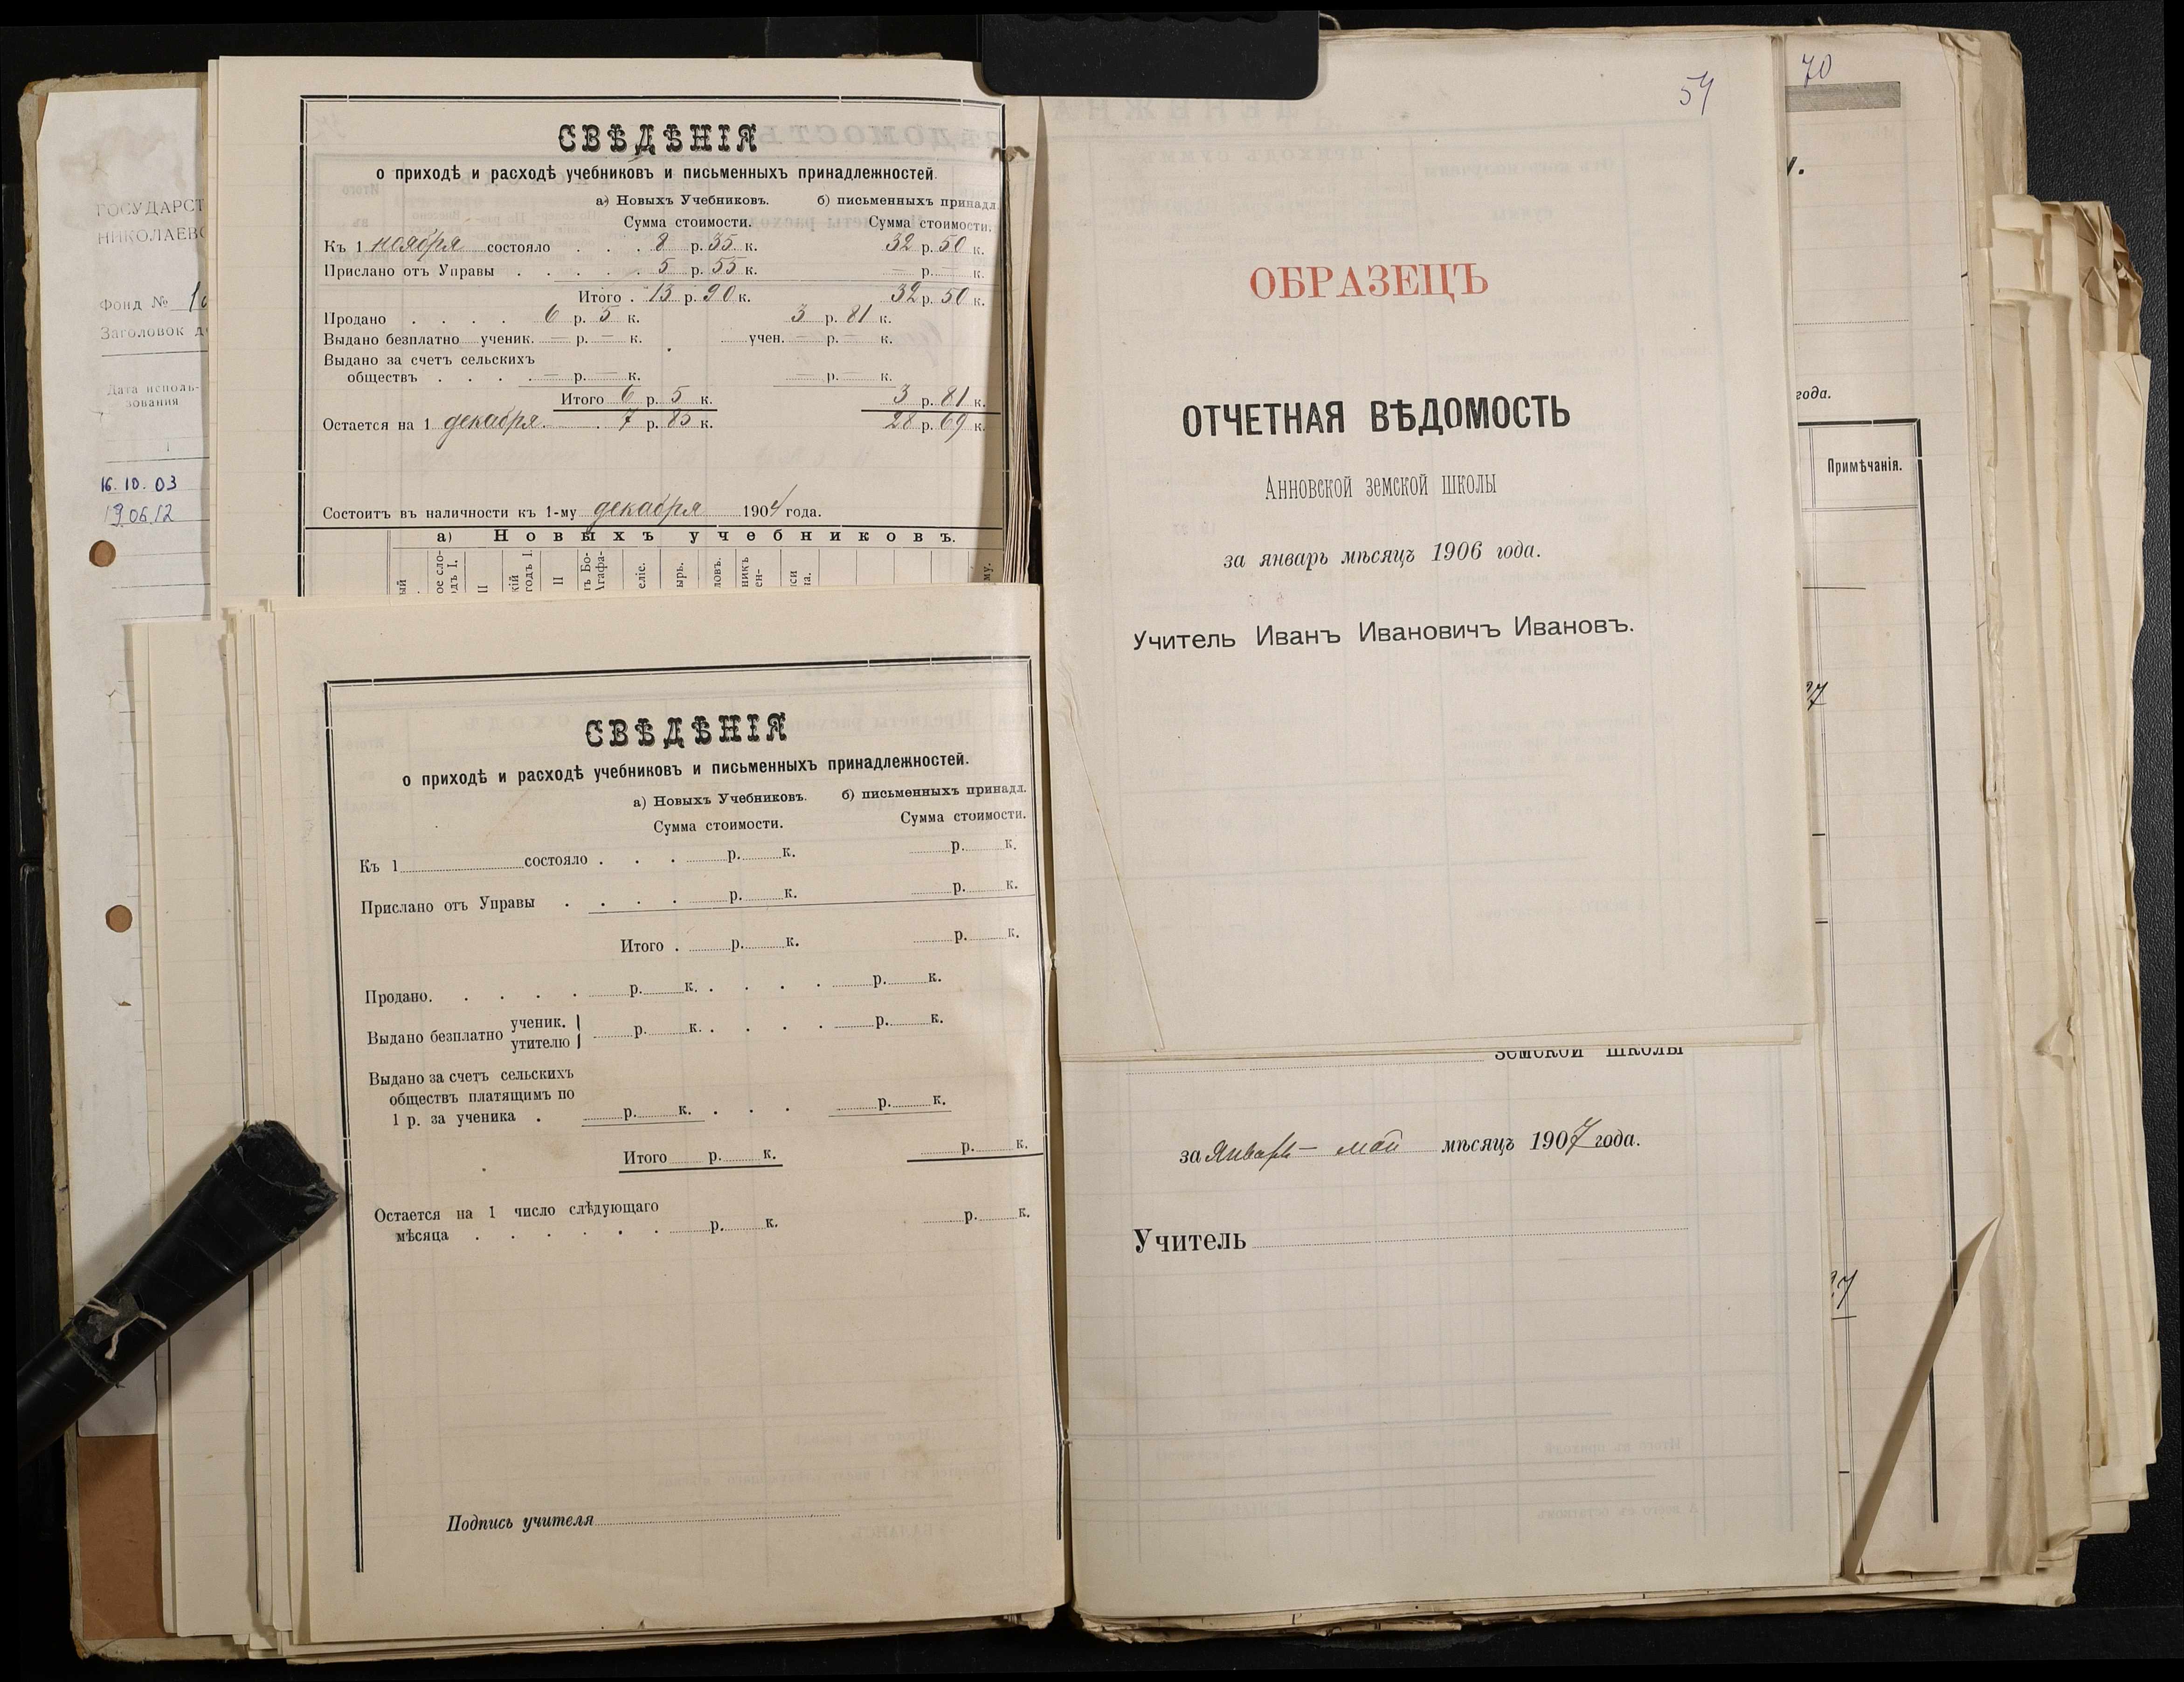 ГОСУДАРСТ
НИКОЛАЕВС
Фонд №
Заголовок д
Дата исполь-
зования
1
16.10.03
19.06.12
СВѢДѢНІЯ
о приходѣ и расходѣ учебниковъ и письменныхъ принадлежностей.
а) Новыхъ Учебниковъ. б) письменныхъ принадл.
Сумма стоимости. Сумма стоимости.
Къ 1 ноября состояло . . . 8 р. 35 к. 32 р. 50 к.
Прислано отъ Управы . . . . . 5 р. 55 к. — р. — к.
Итого . 13 р. 90 к. 32 р. 50 к.
Продано . . . . 6 р. 5 к. 3 р. 81 к.
Выдано безплатно ученик. — р. — к. учен. — р. — к.
Выдано за счетъ сельскихъ
обществъ . . . . — р. — к. — р. — к.
Итого 6 р. 5 к. 3 р. 81 к.
Остается на 1 декабря . 7 р. 85 к. 28 р. 69 к.
Состоитъ въ наличности къ 1-му декабря 1904 года.
а) Новыхъ учебниковъ.
СВѢДѢНІЯ
о приходѣ и расходѣ учебниковъ и письменныхъ принадлежностей.
а) Новыхъ Учебниковъ. б) письменныхъ принадл.
Сумма стоимости. Сумма стоимости.
Къ 1 состояло . . . р. к. р. к.
Прислано отъ Управы . . . . р. к. р. к.
Итого . р. к. р. к.
Продано. . . . . р. к. . . . . р. к.
Выдано безплатно ученик. р. к. . . . . р. к.
утителю
Выдано за счетъ сельскихъ
обществъ платящимъ по
1 р. за ученика . р. к. . . . р. к.
Итого р. к. р. к.
Остается на 1 число слѣдующаго
мѣсяца . . . . . . р. к. р. к.
Подпись учителя
54
ОБРАЗЕЦЪ
ОТЧЕТНАЯ ВѢДОМОСТЬ
Анновской земской школы
за январь мѣсяцъ 1906 года.
Учитель Иванъ Ивановичъ Ивановъ.
земской школы
за Январь — май мѣсяцъ 1907 года.
Учитель
70
года.
Примѣчанія.